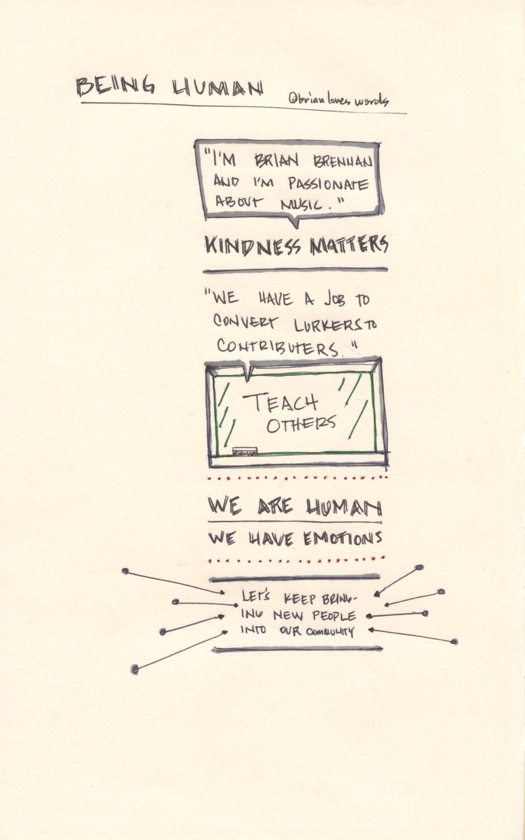 BEING HUMAN @brianloveswords
"I'M BRIAN BRENNAN
AND I'M PASSIONATE
ABOUT MUSIC."
KINDNESS MATTERS
"WE HAVE A JOB TO
CONVERT LURKERS TO
CONTRIBUTERS."
TEACH
OTHERS
WE ARE HUMAN
WE HAVE EMOTIONS
LET'S KEEP BRING-
ING NEW PEOPLE
INTO OUR COMMUNITY